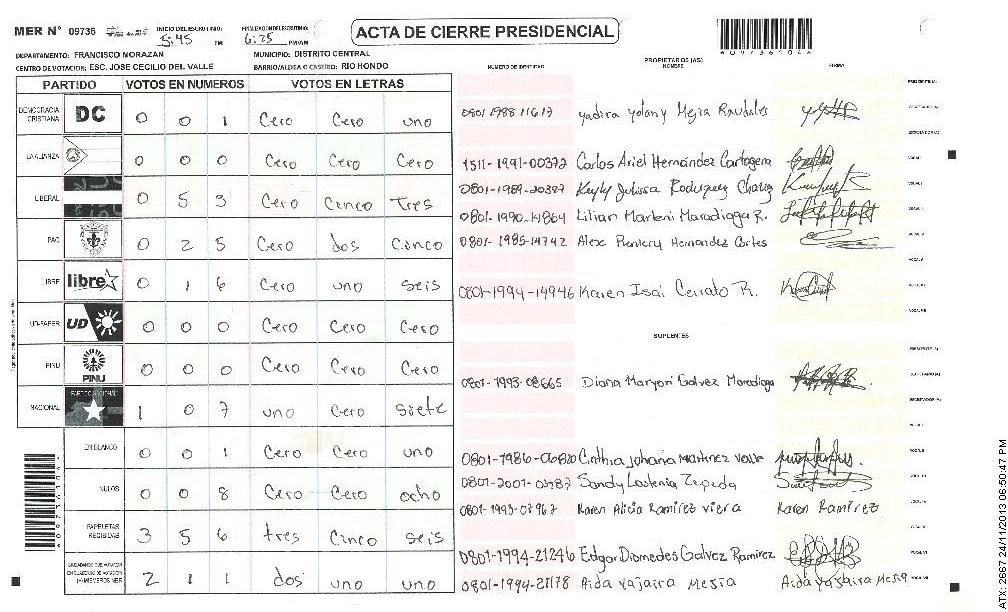 MER Nº 09736 INICIO DEL ESCRUTINIO: 5:45 PM FINALIZACION DEL ESCRUTINIO: 6:25 PM/AM
ACTA DE CIERRE PRESIDENCIAL
DEPARTAMENTO: FRANCISCO MORAZAN MUNICIPIO: DISTRITO CENTRAL
CENTRO DE VOTACION: ESC. JOSE CECILIO DEL VALLE BARRIO/ALDEA O CASERIO: RIO HONDO
NUMERO DE IDENTIDAD PROPIETARIOS (AS) NOMBRE FIRMA
PARTIDO VOTOS EN NUMEROS VOTOS EN LETRAS
DEMOCRACIA CRISTIANA DC 0 0 1 Cero Cero uno
LA ALIANZA 0 0 0 Cero Cero Cero
LIBERAL 0 5 3 Cero Cinco Tres
PAC 0 2 5 Cero dos Cinco
LIBRE libre 0 1 6 Cero uno seis
UD-FAPER UD 0 0 0 Cero Cero Cero
PINU PINU 0 0 0 Cero Cero Cero
NACIONAL PARTIDO NACIONAL 1 0 7 uno Cero siete
EN BLANCO 0 0 1 Cero Cero uno
NULOS 0 0 8 Cero Cero ocho
PAPELETAS RECIBIDAS 3 5 6 tres Cinco seis
2 1 1 dos uno uno
0801 1988 11617 Yadira Yolany Mejia Raudales
1511-1991-00372 Carlos Ariel Hernández Cartagena
0801-1989-20387 Keyly Julissa Rodriguez
0801-1990-14864 Lilian Marleni Maradiaga R.
0801-1985-14742 Hernandez Cortes
0801-1994-14946 Karen Isai Cerrato R.
SUPLENTES
0801-1993-08665 Diana Maryori Galvez Maradiaga
0801-1986-06820 Cinthia Johania Martinez
Sandy Zepeda
0801-1993-07967 Karen Alicia Ramirez Viera Karen Ramirez
0801-1994-21246 Edgar Diomedes Galvez Ramirez
0801-1994-21178 Aida Yajaira Mesia Aida Yajaira Mesia
ATX-2667 24/11/2013 06:50:47 PM